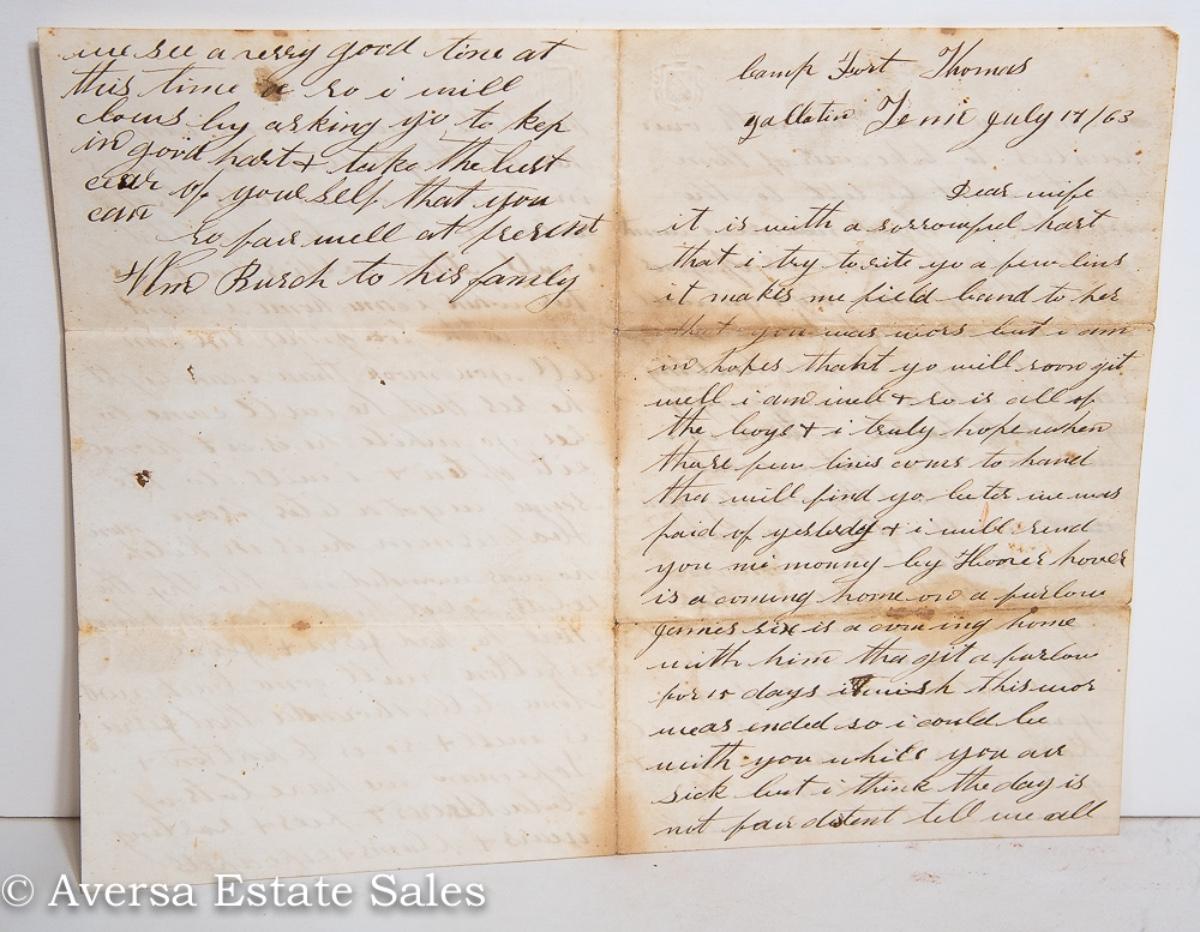 Camp Fort Thomas
gallatin Tenn July 17/63
Dear wife
it is with a sorrowful hart
that i try to rite yo a few lins
it makes me field band to her
that you was wors but i am
in hopes thaht yo will soon git
well i am well & so is all of
the boys & i truly hope when
those few lines coms to hand
tha will find yo beter we was
paid of yesterday & i will send
you mi monny by Hoover hover
is a coming home on a furlow
James six is a coming home
with him tha git a furlow
for 15 days i wish this wor
was ended so i could be
with you while you air
sick but i think the day is
not fair distent tell me all
we see a verry good time at
this time so i will
clous by asking yo to kep
in good hart & take the best
cear of yourself that you
can
so fair well at present
Wm Rusch to his family
© Aversa Estate Sales